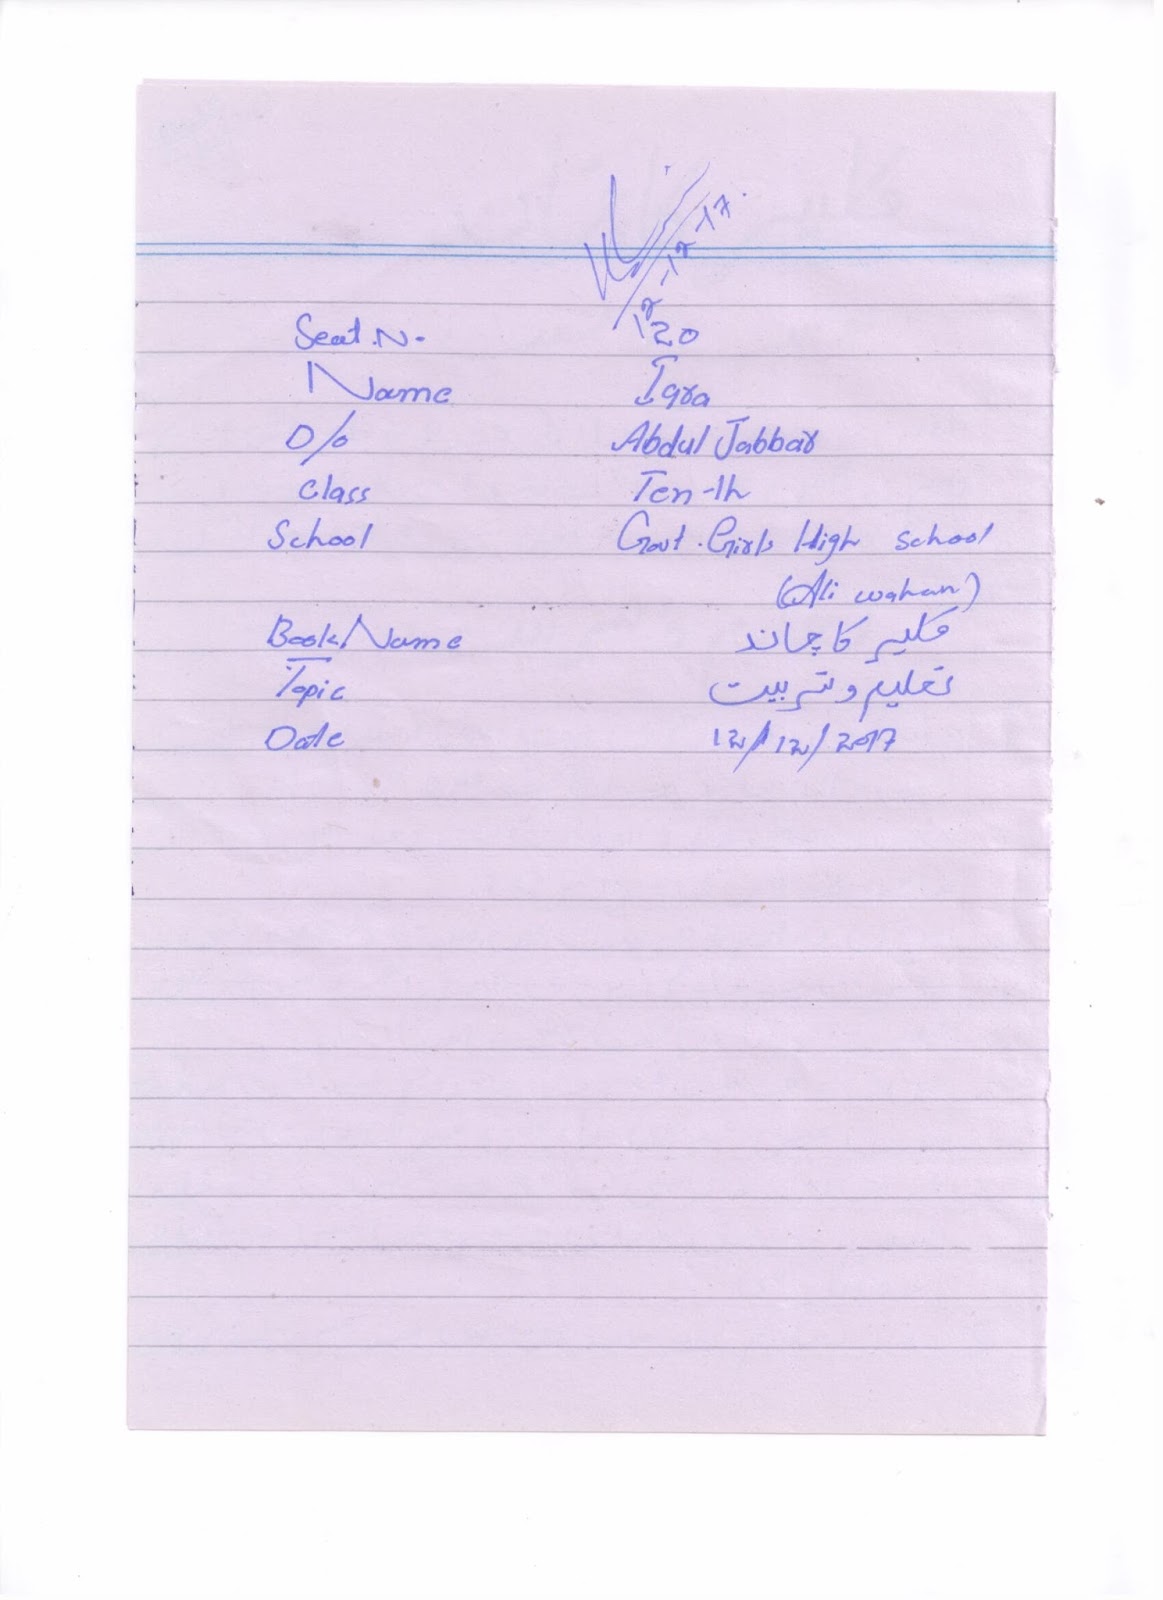 12-12-17.
Seat.N. 20
Name Iqra
D/o Abdul Jabbar
Class Ten-th
School Govt. Girls High school
(Ali wahan)
Book Name کا چاند
Topic تعلیم و تربیت
Date 12/12/2017